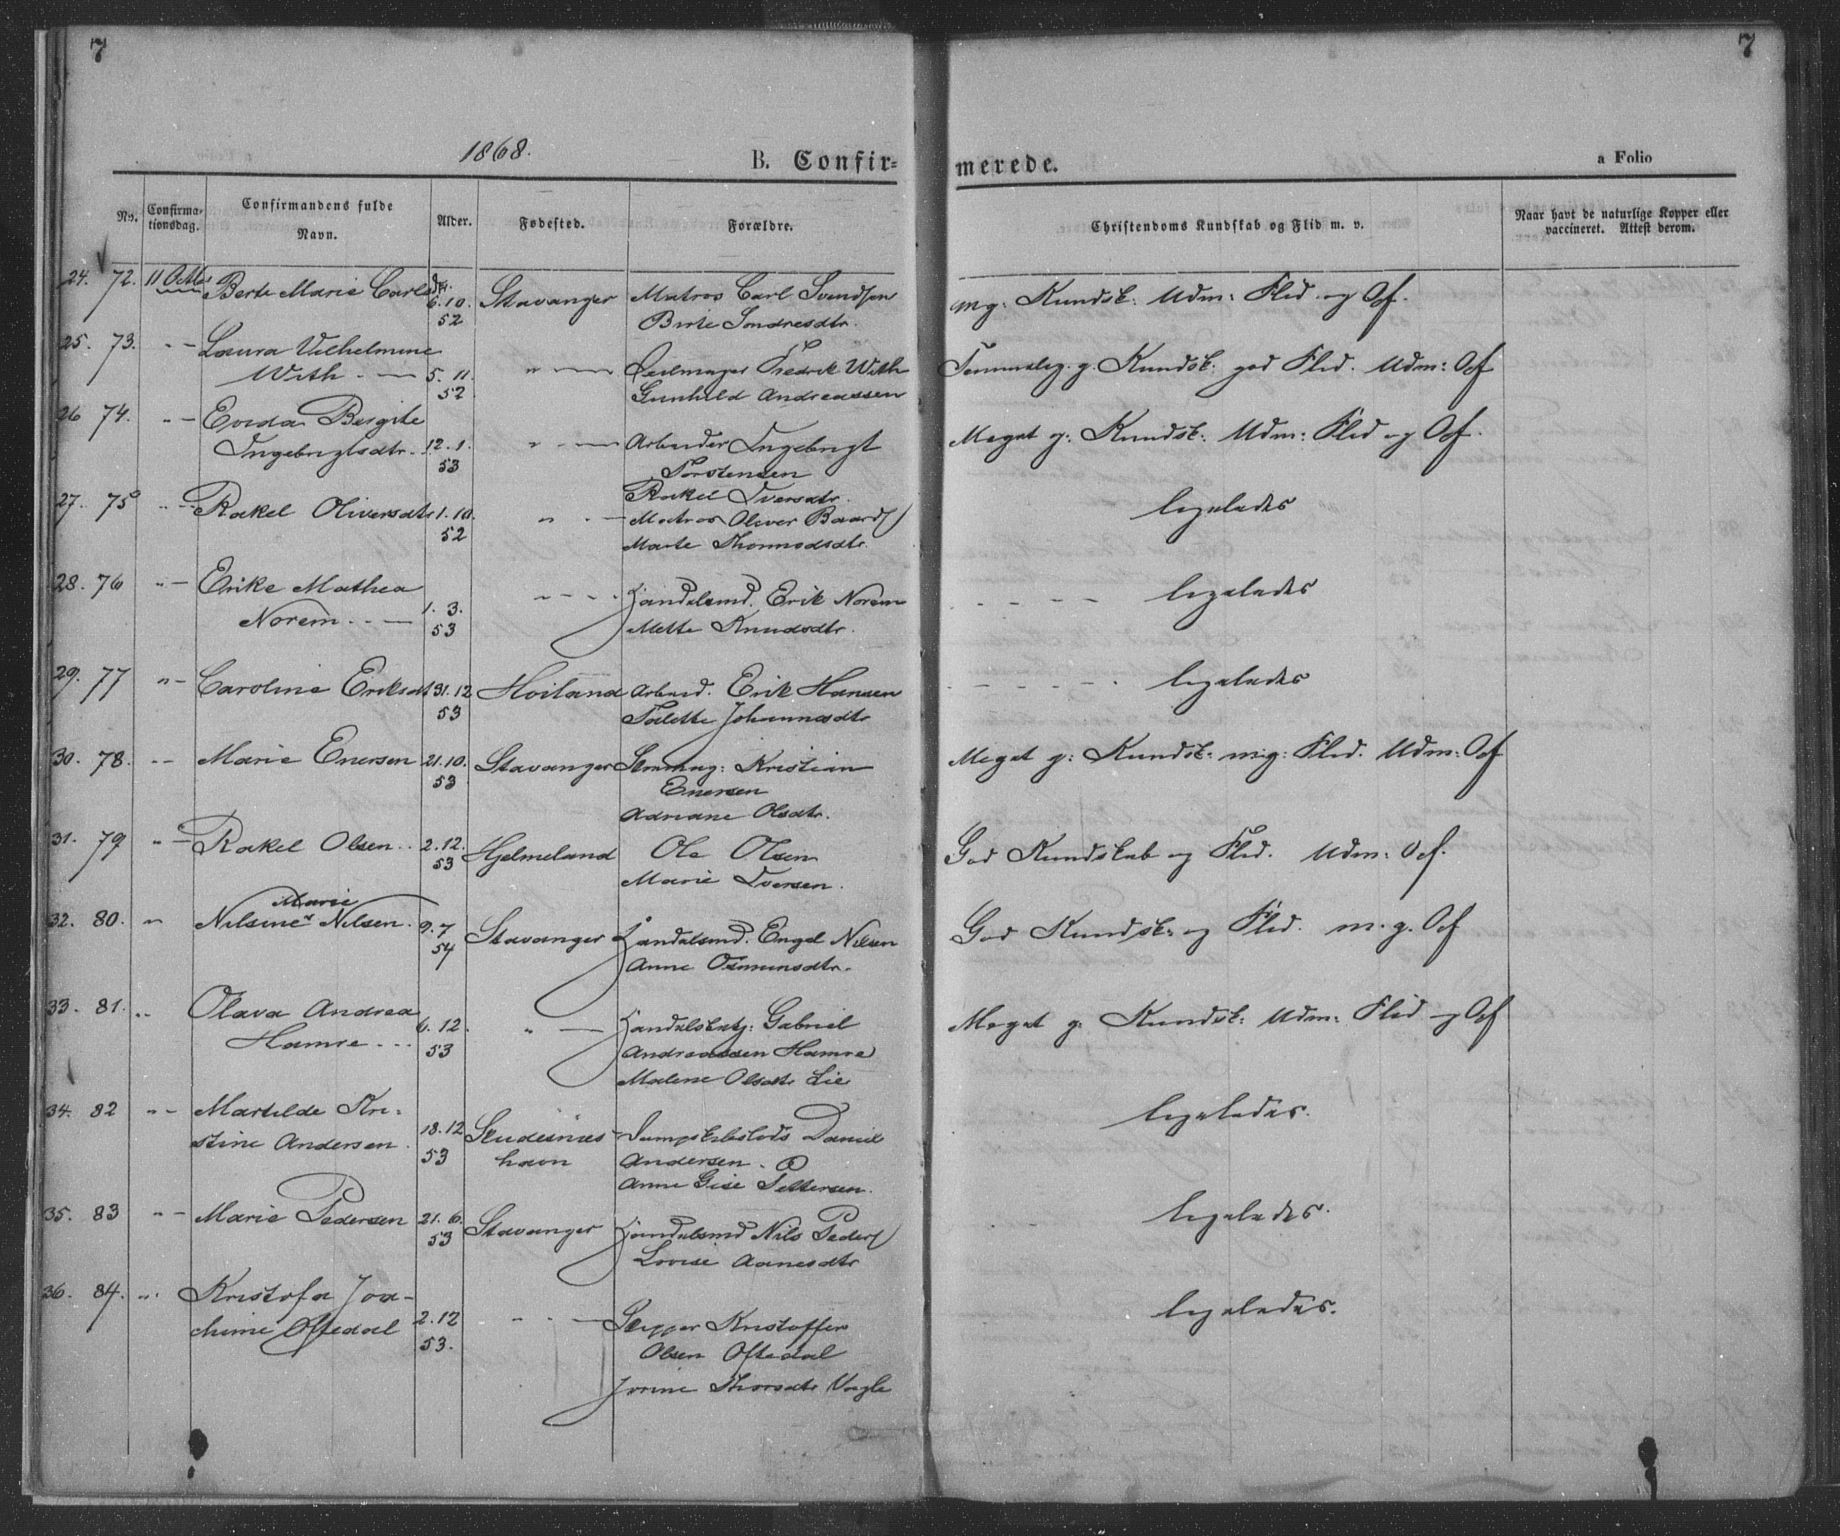 7
7
1868.
B. Confir=
merede.
a Folio
No.
Confirma-
tionsdag.
Confirmandens fulde
Navn.
Alder.
Fødested.
Forældre.
Christendoms Kundskab og Flid m. v.
Naar havt de naturlige Kopper eller
vaccineret. Attest derom.
24. 72. 11 Octbr Berte Marie Carlsdtr. 6.10. Stavanger Matros Carl Svendsen mg: Kundsk: Udm: Flid og Opf.
52 Birte Sondresdtr.
25. 73. " — Laura Vilhelmine
With. — 5. 11. " — Seilmager Fredrik With Temmelig g. Kundsk: god Flid. Udm: Opf
52 Gunhild Andreassen
26 74. " — Evida Bergite
Ingebrigtsdtr. 12. 1. " — Arbeider Ingebrigt Meget g: Kundsk: Udm: Flid og Opf.
53 Torstensen
Rakel Iversdtr.
27. 75 " — Rakel Oliversdtr 1. 10. " — Matros Oliver Baards ligeledes
52 Marte Thormodsdtr.
28. 76 " — Erike Mathea
Norem. — 1. 3. " - - - Handelsmd. Erik Norem - - - - - ligeledes
53 Mette Knudsdtr.
29. 77 " — Caroline Eriksdt 31. 12 Hoiland Arbeid. Erik Hansen - - - - - ligeledes
53 Tolette Johannesdtr
30. 78. " — Marie Enersen 21. 10. Stavanger Stenmag: Kristian Meget g: Kundsk: mg: Flid. Udm: Opf
53 Enersen
Adriane Olsdtr.
31. 79 " — Rakel Olsen.. 2. 12. Hjelmeland Ole Olsen God Kundskab og Flid. Udm: Opf.
53 Marie Iversen.
Marie
32. 80. " Nilsine Nilsen. 9. 7 Stavanger Handelsmd. Engel Nilsen God Kundsk: og Flid. m. g. Opf
54 Anne Osmunsdtr.
33. 81. .. Olava Andrea
Hamre... 6. 12. " — Handelsbetj: Gabriel Meget g: Kundsk: Udm: Flid og Opf
53 Andreassen Hamre
Malene Olsdtr Lie
34. 82 " — Martilde Kri-
stine Andersen. 18. 12 Skudesnæs- Dampskibslods Daniel ligeledes.
53 havn Andersen.
Anne Gise Pettersen.
35. 83 " — Marie Pedersen 21. 6. Stavanger Handelsmd Nils Peders ligeledes.
53 Lovise Aanesdtr
36. 84. ".. Kristofa Joa-
chime Oftedal 2. 12 " — Skipper Kristoffer ligeledes.
53. Olsen Oftedal
Jorine Thorsdtr Vagle